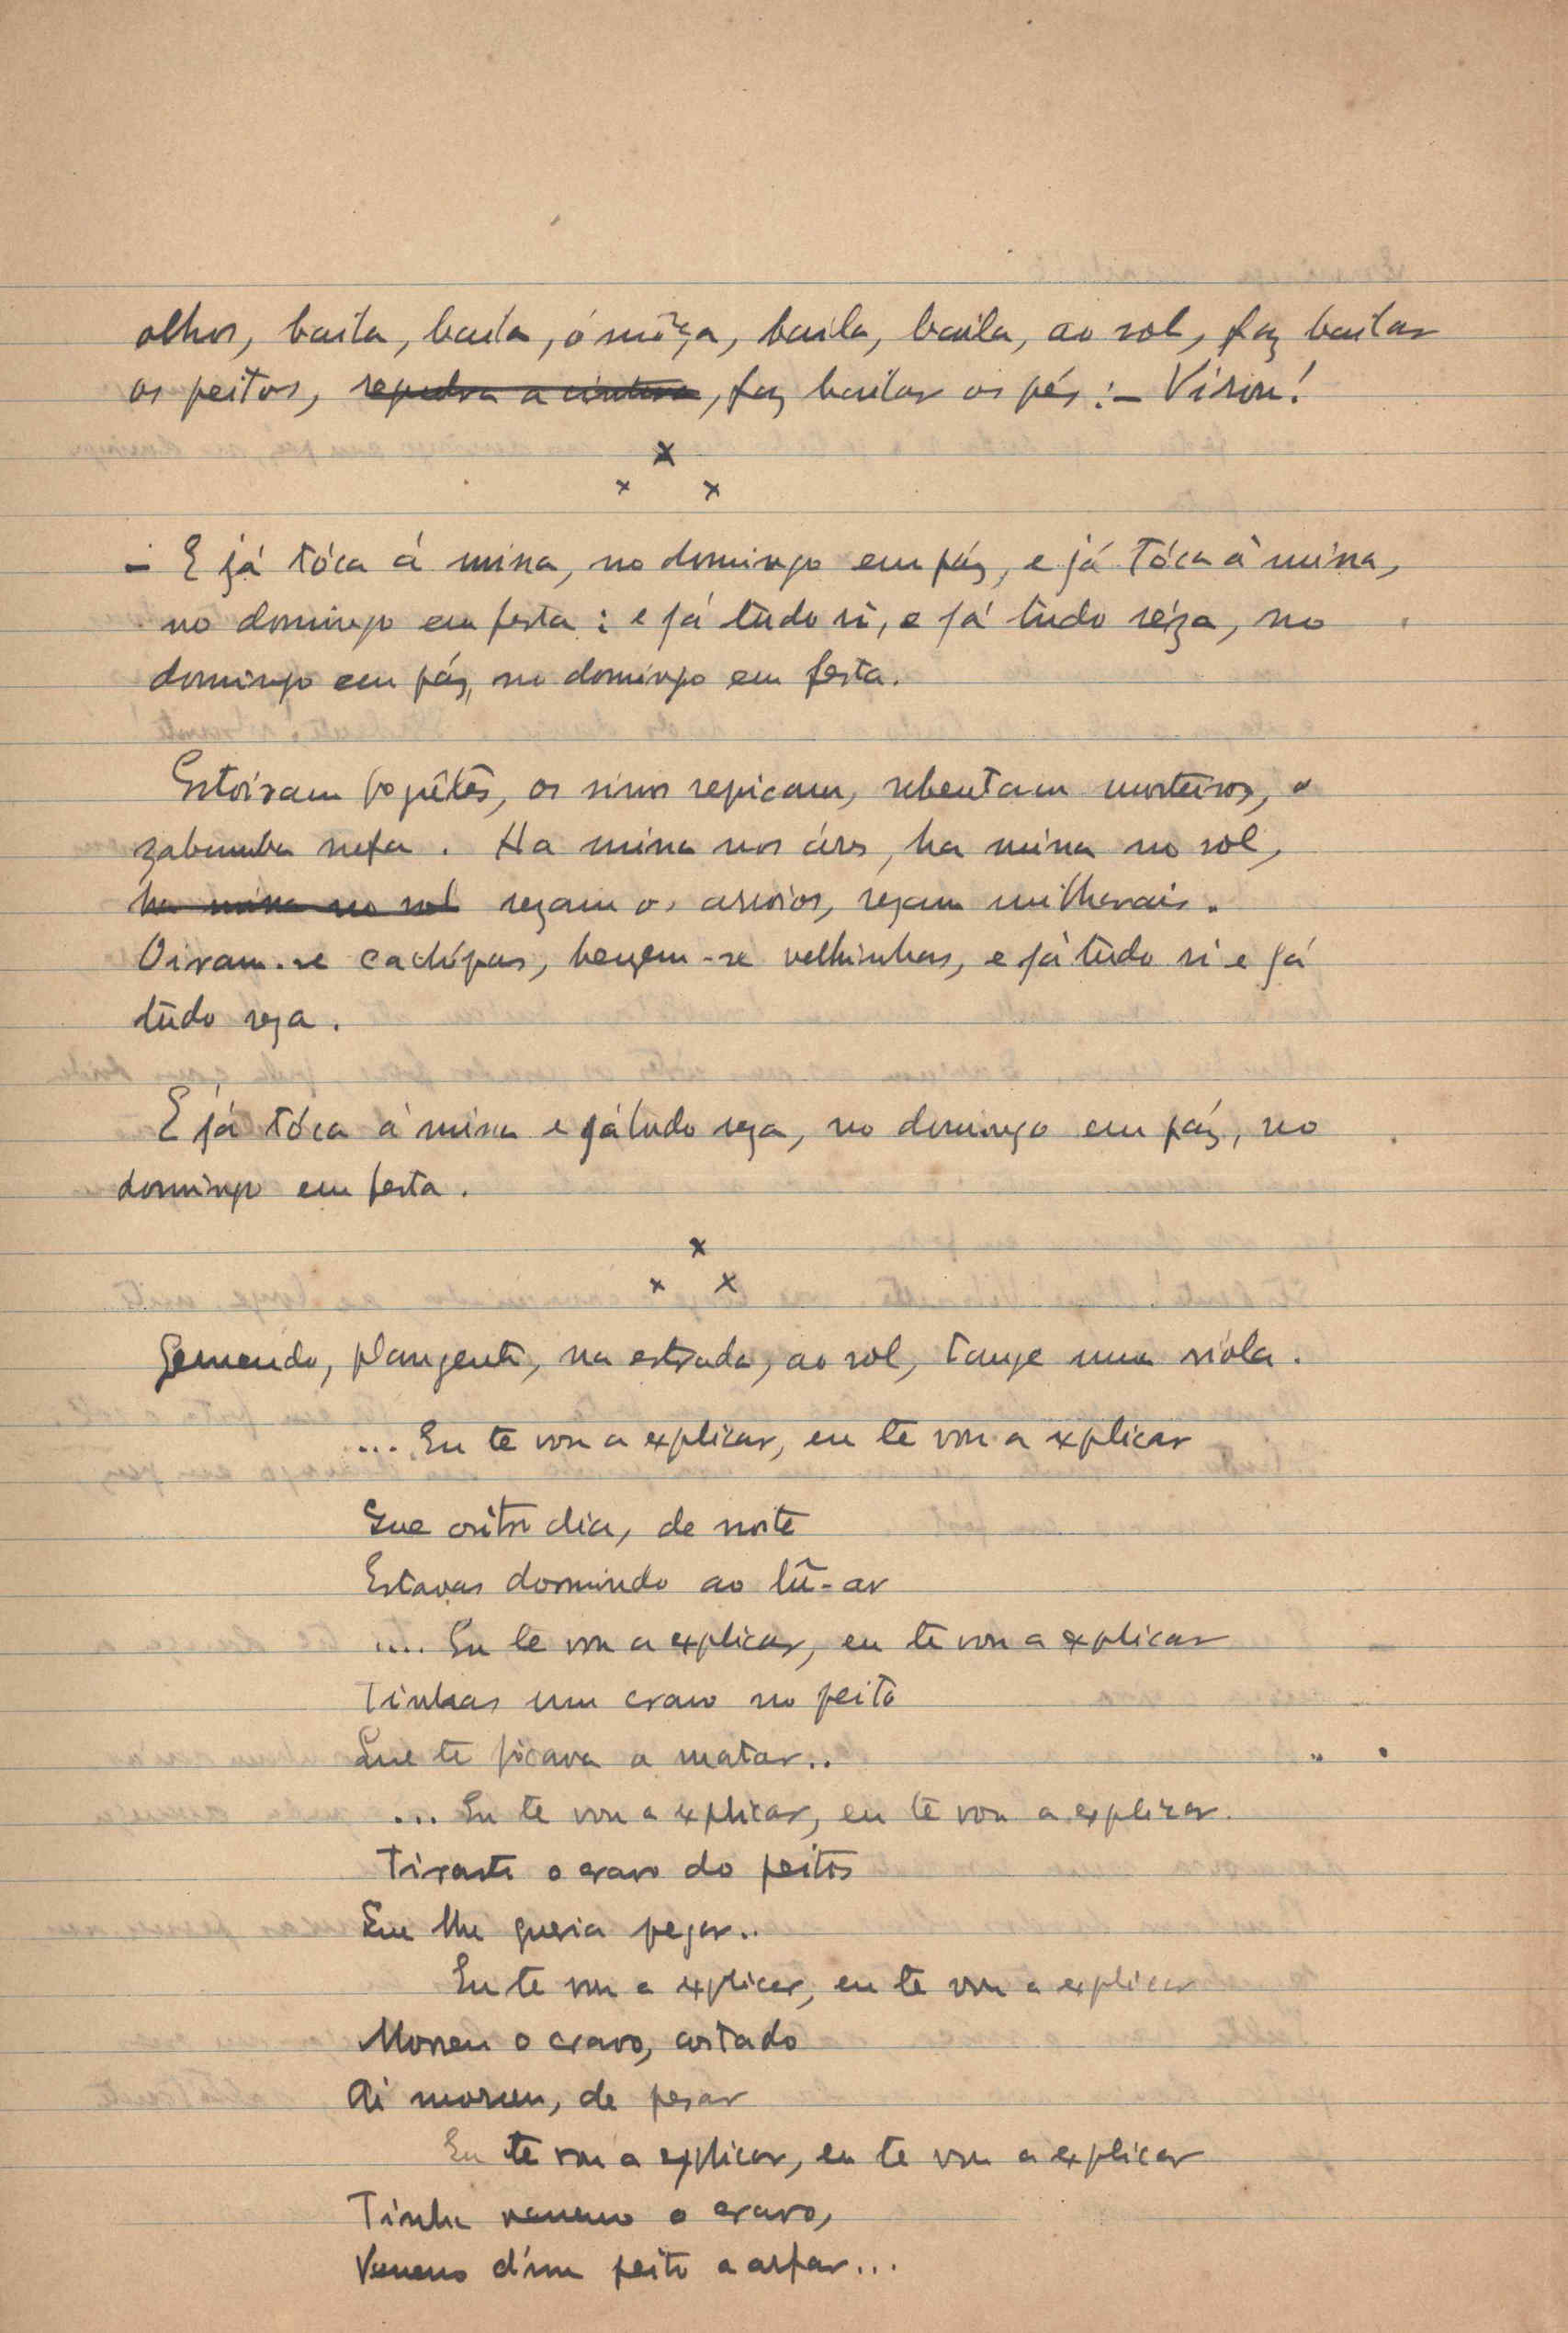 olhos, baila, baila, ó môça, baila, baila, ao sol, faz bailar
os peitos, faz bailar os pés: – Virou!
x
x x
– E já tóca á missa, no domingo em páz, e já tóca à missa,
no domingo em festa: e já tudo ri, e já tudo réza, no
domingo em páz, no domingo em festa.
Estoiram foguêtes, os sinos repicam, rebentam morteiros, o
zabumba rufa. Ha missa nos áres, ha missa no sol,
ha missa no sol rezam os arroios, rezam milharais.
Oiram-se cachópas, benzem-se velhinhas, e já tudo ri e já
tudo reza.
E já tóca à missa e já tudo reza, no domingo em páz, no
domingo em festa.
x
x x
Gemendo, plangente, na estrada, ao sol, tange uma viola.
... Eu te vou a explicar, eu te vou a explicar
Que oitro dia, de noite
Estavas dormindo ao lũ-ar
.... Eu te vou a explicar, eu te vou a explicar
Tinhas um cravo no peito
Que te picava a matar..
... Eu te vou a explicar, eu te vou a explicar.
Tiraste o cravo do peito
Eu lhe queria pegar..
Eu te vou a explicar, eu te vou a explicar
Morreu o cravo, cortado
Ai morreu, de pesar
Eu te vou a explicar, eu te vou a explicar
Tinha veneno o cravo,
Veneno d'um peito a arfar...